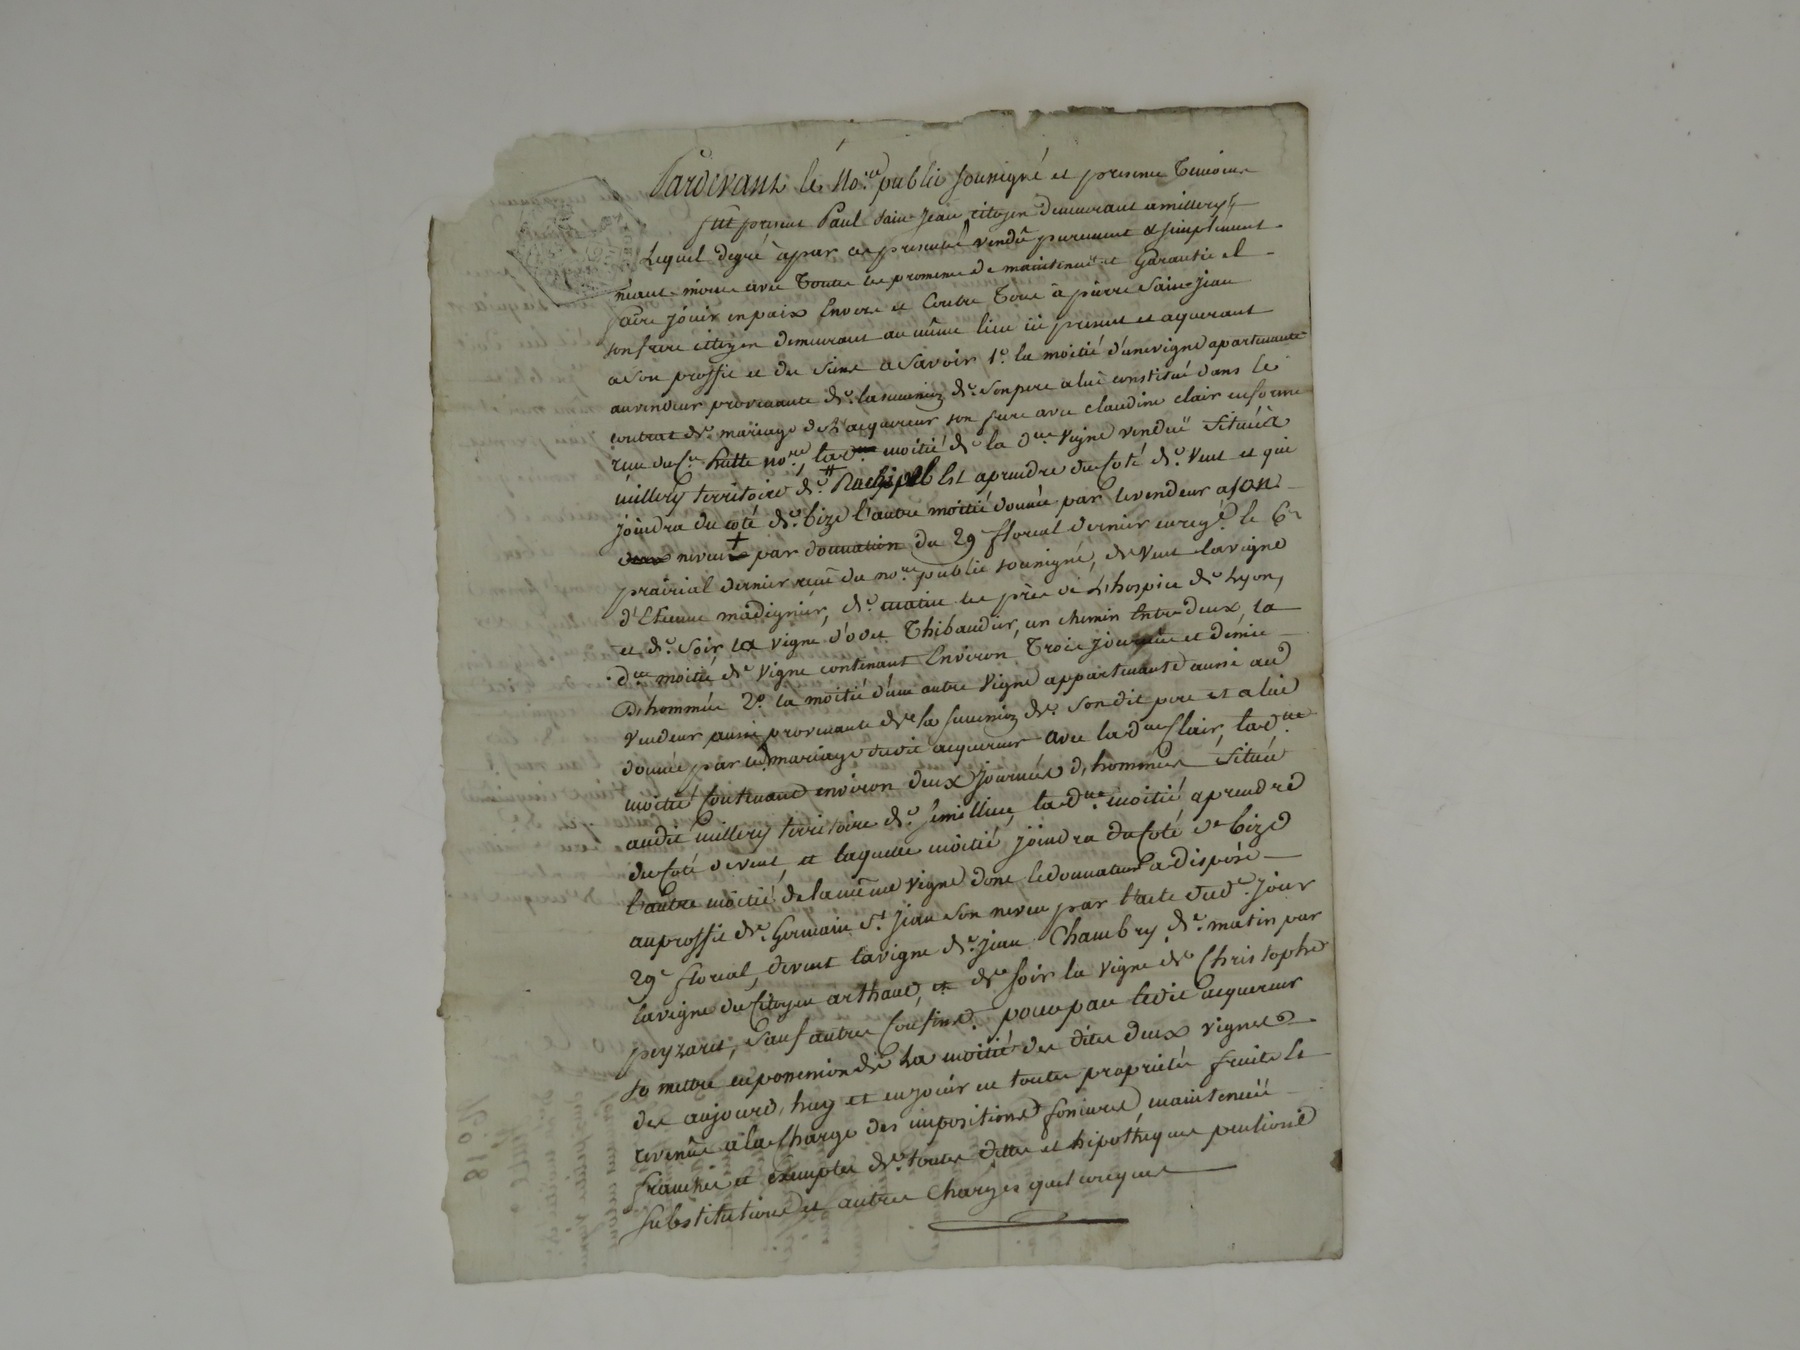 Pardevant le No.re public soussigné et presens Temoins
fut present Paul Sain-Jean citoyen demeurant a millery
Lequel degré a par ces presentes vendû purement & simplement
neant-moins avec Toutes les promesses de maintenuë et Garantie et
faire jouir en paix Envers et Contre Tous à pierre Sain-Jean
son frere citoyen demeurant au même lieu ici present et aquerant
a son proffit et des siens a Savoir 1.° la moitié d'une vigne apartenante
au vendeur provenante de la succession de son pere a lui constitué dans le
contrat de mariage de l'acquereur son frere avec Claudine clair en forme
recu du C.n no.re, la d. moitié de la d.te vigne venduë Située à
millery territoire de Est a prendre du Coté de Vent et qui
joindra du coté de bize l'autre moitié donnée par le vendeur a son
neveu par donnation du 29 floreal dernier enreg.é le 6
prairial dernier recuë du no.re public soussigné, de Vent la vigne
d'Etienne madignier, de matin les prés de L'hospice de Lyon,
et de Soir la vigne d'odet Thibaudier, un chemin Entre deux, la
d.te moitié de Vigne contenant Environ Trois journées et demie
D'hommée 2.° la moitié d'une autre Vigne appartenante aussi au
Vendeur aussi provenante de la succession de Son dit pere et a lui
donnée par le mariage dudit acquereur avec la d.te Clair, la d.te
moitié Contenant environ deux journées d'hommes Située
audit millery territoire de la d.te moitié a prendre
du Coté de vent, et laquelle moitié joindra du Coté de bize
l'autre moitié de la même vigne dont le donnateur a disposé
au proffit de Germain S.t Jean Son neveu par l'acte dud.t jour
29 floreal, de vent la vigne de jean Chambry de matin par
la vigne du Citoyen arthaud, et de soir la vigne de Christophe
peyzaret, Sauf autres Confins. pour par ledit acquereur
se mettre en possession de La moitié des dites deux vignes
des aujourd'huy et en jouir en toutes propriétés fruits Et
revenûs a la Charge des impositions foncieres, maintenuë
franches et exemptes de toutes dettes et hipotheques pensions
Substitutions et autres Charges quelconques